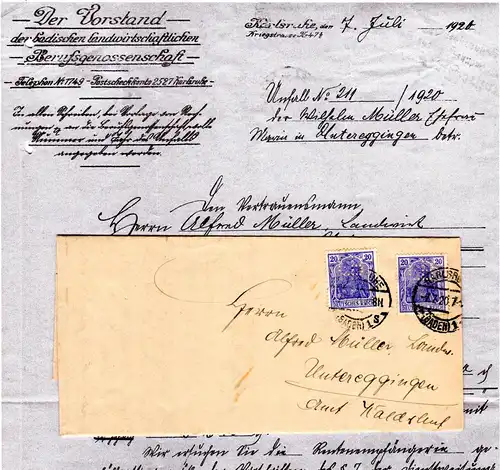 Der Vorstand
der badischen landwirtschaftlichen
Berufsgenossenschaft
Telephon No 1749 - Postscheckkonto 2527 Karlsruhe
In allen Schreiben, bei Vorlage von Rech-
nungen
Nummer und Jahr des Unfalls
angegeben werden.
Karlsruhe, den 7. Juli 1920
Kriegstrasse
Unfall No 211 / 1920
der Wilhelm Müller Ehefrau
Maria in Untereggingen betr.
Den Vertrauensmann,
Herrn Alfred Müller Landwirt
20 20
20 20
DEUTSCHES REICH
(BADEN) 1
(BADEN) 1
Herrn
Alfred Müller, Landw.
Untereggingen
Amt Waldshut
Wir ersuchen Sie die Rentenempfängerin